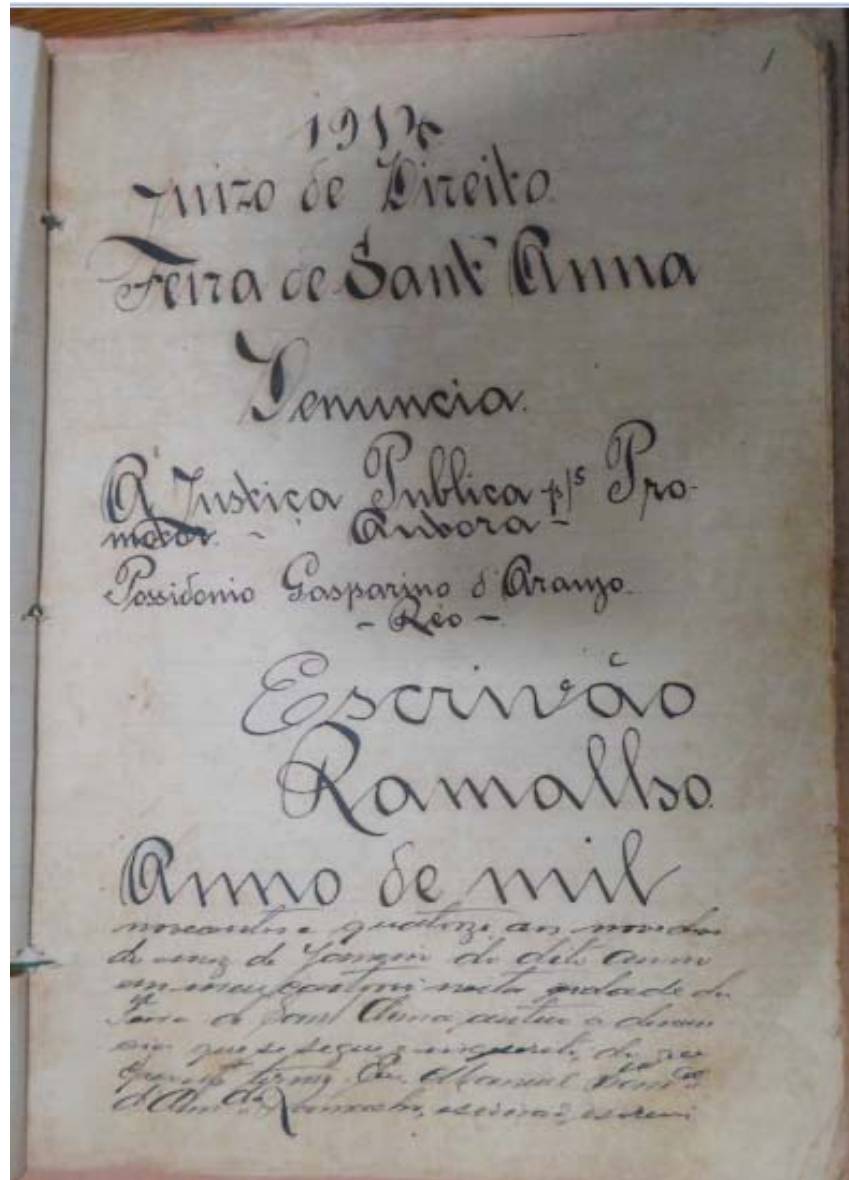 1
1914
Juizo de Direito.
Feira de Sant'Anna
Denuncia.
A Justiça Publica p/s Pro-
motor. - Autora -
Possidonio Gasparino d'Araujo.
- Réo -
Escrivão
Ramalho.
Anno de mil
novecentos e quatorze, aos nove dias
do mez de Janeiro do dito anno
em meu cartorio nesta cidade da
Feira de Sant'Anna autuo a denun
cia que se segue e inquerito, do que
termo. Eu, Manuel
Ramalho, escrivão, escrevi